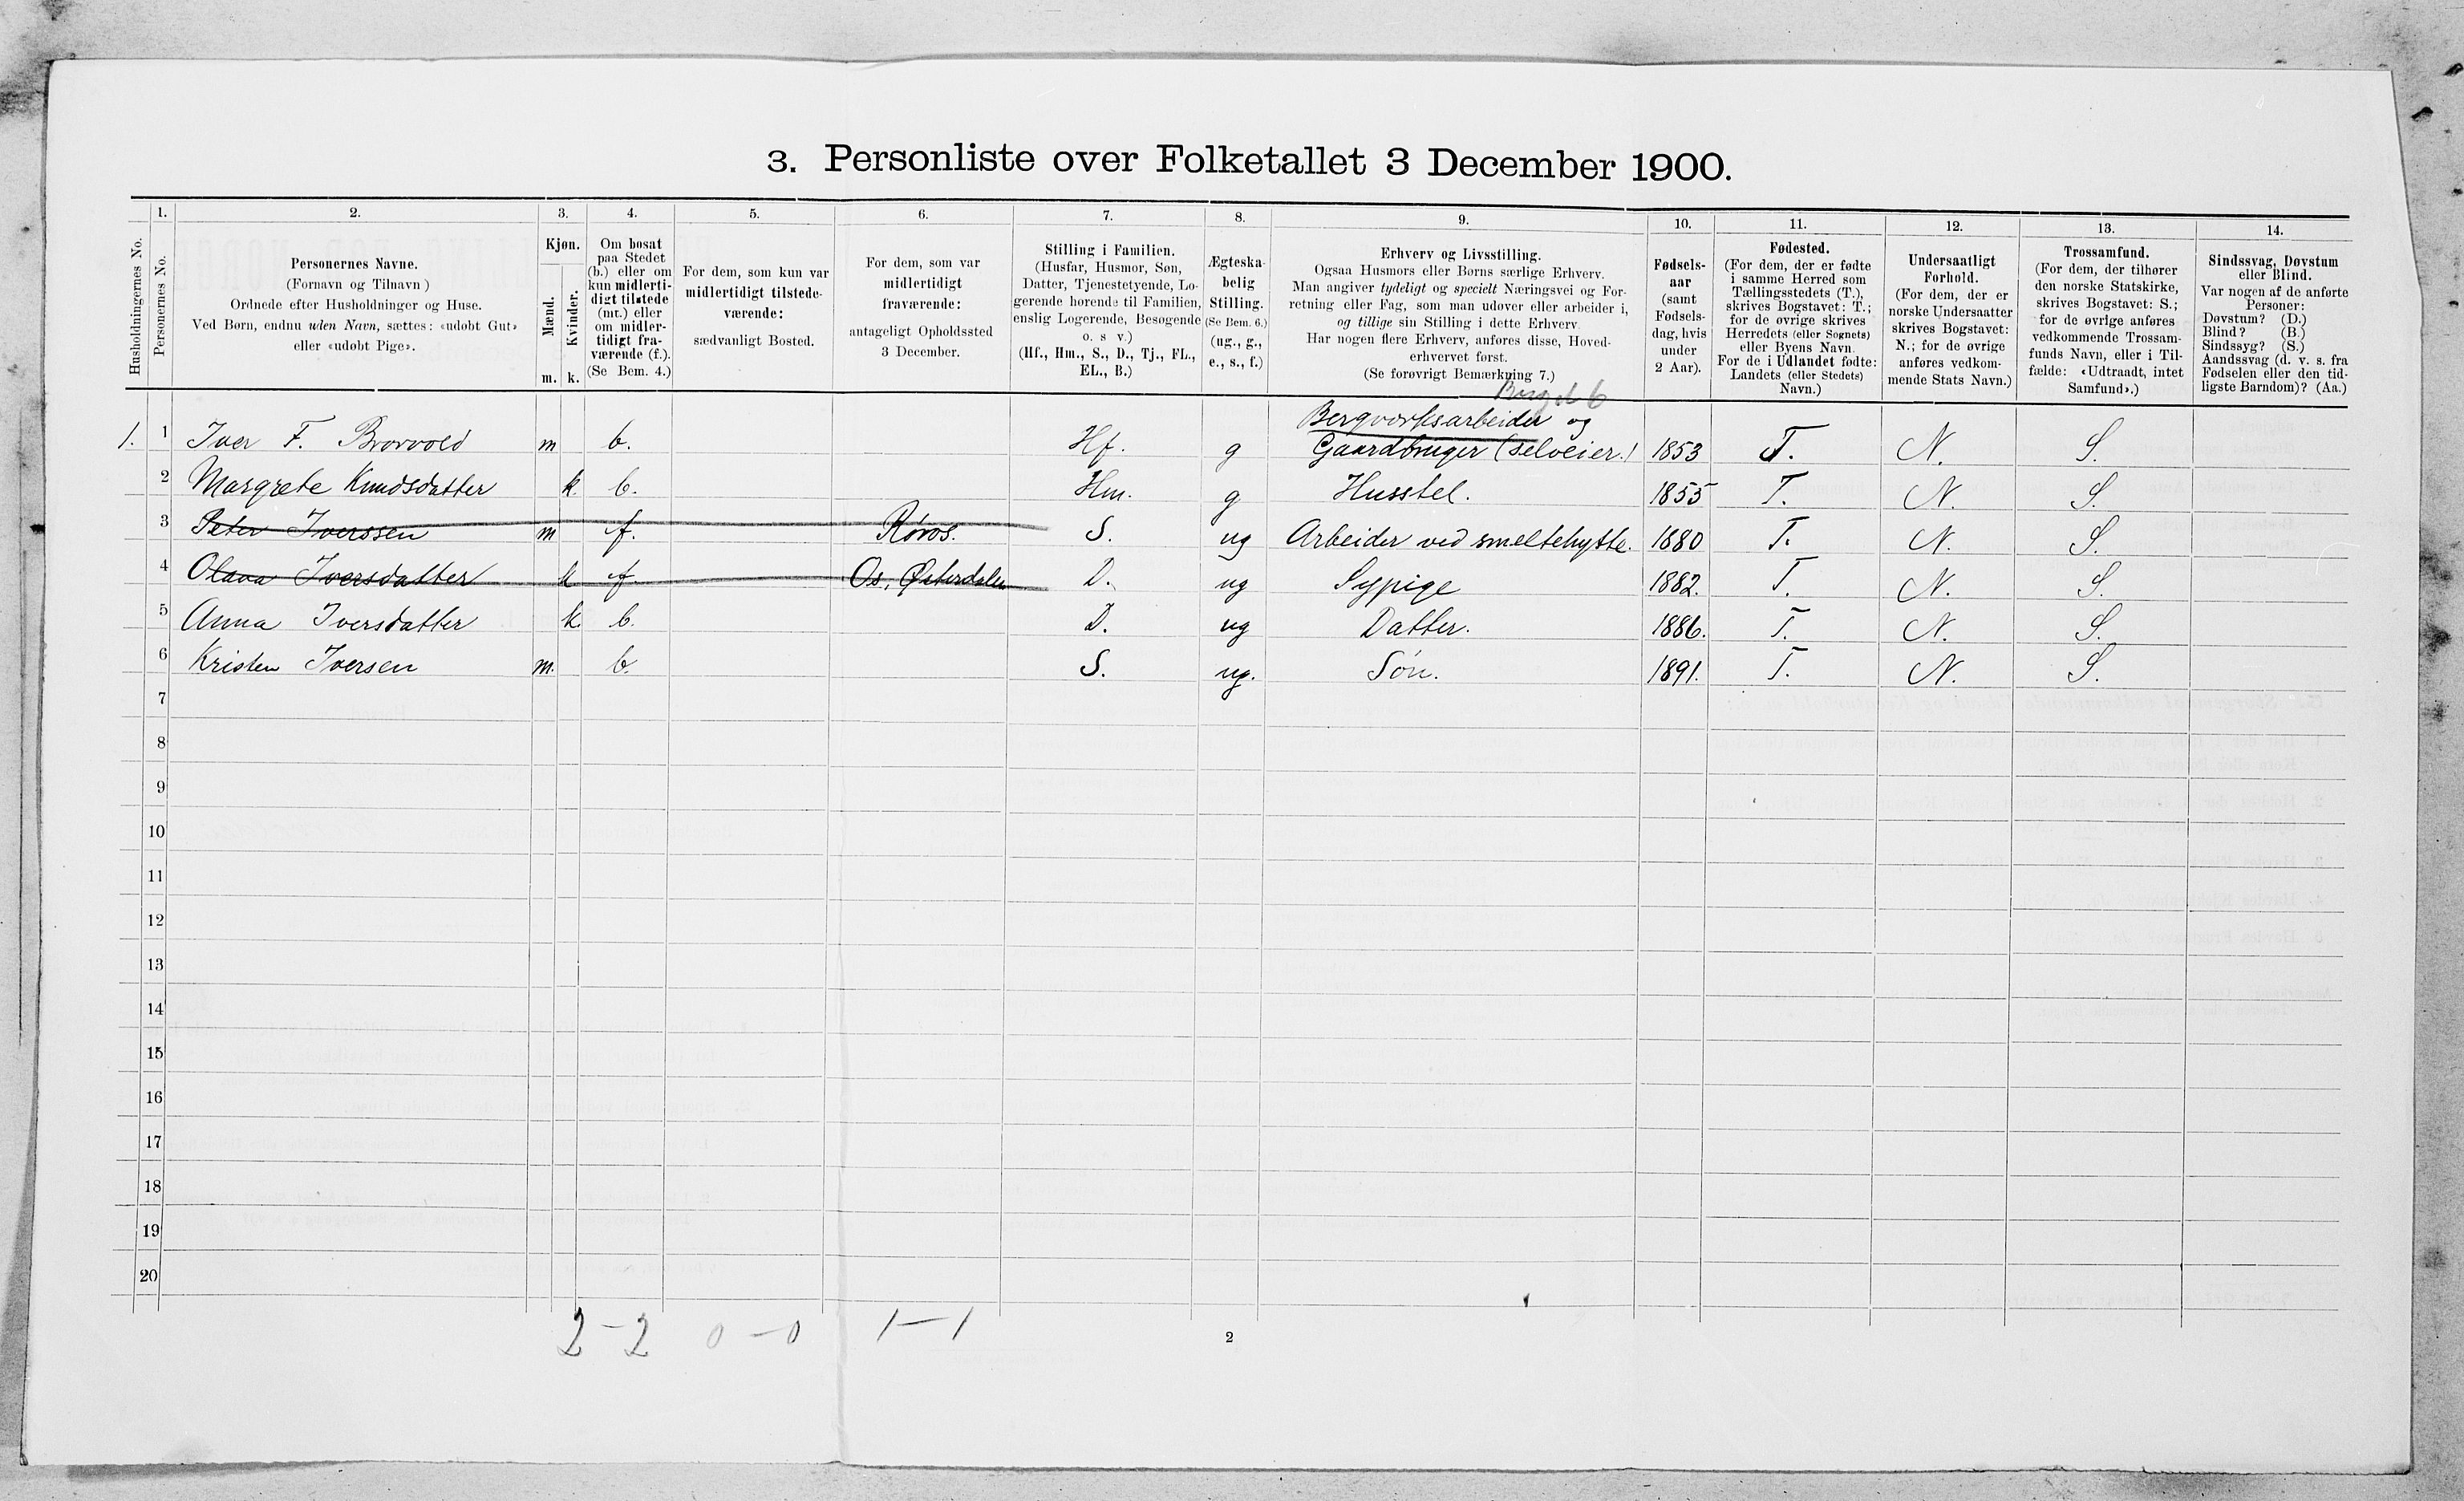 3. Personliste over Folketallet 3 December 1900.
1. 2. 3. 4. 5. 6. 7. 8. 9. 10. 11. 12. 13. 14.
Husholdningernes No.
Personernes No.
Personernes Navne.
(Fornavn og Tilnavn)
Ordnede efter Husholdninger og Huse.
Ved Børn, endnu uden Navn, sættes: «udøbt Gut»
eller «udøbt Pige».
Kjøn.
Mænd.
Kvinder.
m. k.
Om bosat
paa Stedet
(b.) eller om
kun midlerti-
digt tilstede
(mt.) eller
om midler-
tidigt fra-
værende (f.).
(Se Bem. 4.)
For dem, som kun var
midlertidigt tilstede-
værende:
sædvanligt Bosted.
For dem, som var
midlertidigt
fraværende:
antageligt Opholdssted
3 December.
Stilling i Familien.
(Husfar, Husmor, Søn,
Datter, Tjenestetyende, Lo-
gerende hørende til Familien,
enslig Logerende, Besøgende
o. s v.)
(Hf., Hm., S., D., Tj., FL.,
EL., B.)
Ægteska-
belig
Stilling.
(Se Bem. 6.)
(ug., g.,
e., s., f.)
Erhverv og Livsstilling.
Ogsaa Husmors eller Børns særlige Erhverv.
Man angiver tydeligt og specielt Næringsvei og For-
retning eller Fag, som man udøver eller arbeider i,
og tillige sin Stilling i dette Erhverv.
Har nogen flere Erhverv, anføres disse, Hoved-
erhvervet først.
(Se forøvrigt Bemærkning 7.)
Fødsels-
aar
(samt
Fødsels-
dag, hvis
under
2 Aar).
Fødested.
(For dem, der er fødte
i samme Herred som
Tællingsstedets (T.),
skrives Bogstavet: T.;
for de øvrige skrives
Herredets (eller Sognets)
eller Byens Navn.
For de i Udlandet fødte:
Landets (eller Stedets)
Navn.)
Undersaatligt
Forhold.
(For dem, der er
norske Undersaatter
skrives Bogstavet:
N.; for de øvrige
anføres vedkom-
mende Stats Navn.)
Trossamfund.
(For dem, der tilhører
den norske Statskirke,
skrives Bogstavet: S.;
for de øvrige anføres
vedkommende Trossam-
funds Navn, eller i Til-
fælde: «Udtraadt, intet
Samfund».)
Sindssvag, Døvstum
eller Blind.
Var nogen af de anførte
Personer:
Døvstum? (D.)
Blind? (B.)
Sindssyg? (S.)
Aandssvag (d. v. s. fra
Fødselen eller den tid-
ligste Barndom)? (Aa.)
Bergverksarbeider og
1. 1 Iver F. Brovold m b. Hf. g Gaardbruger (selveier.) 1853 T. N. S.
2 Margrete Knudsdatter k. b. Hm. g Husstel. 1855 T. N. S.
3 Peter Iverssen m f. Røros. S. ug Arbeider ved smeltehytte. 1880 T. N. S.
4 Olava Iversdatter k f Os, Østerdalen D. ug Sypige 1882. T. N. S.
5 Anna Iversdatter k. b. D. ug Datter. 1886. T. N. S.
6 Kristen Iversen m. b. S. ug. Søn. 1891. T. N. S.
7
8
9
10
11
12
13
14
15
16
17
18
19
20
2-2 0-0 1-1
2